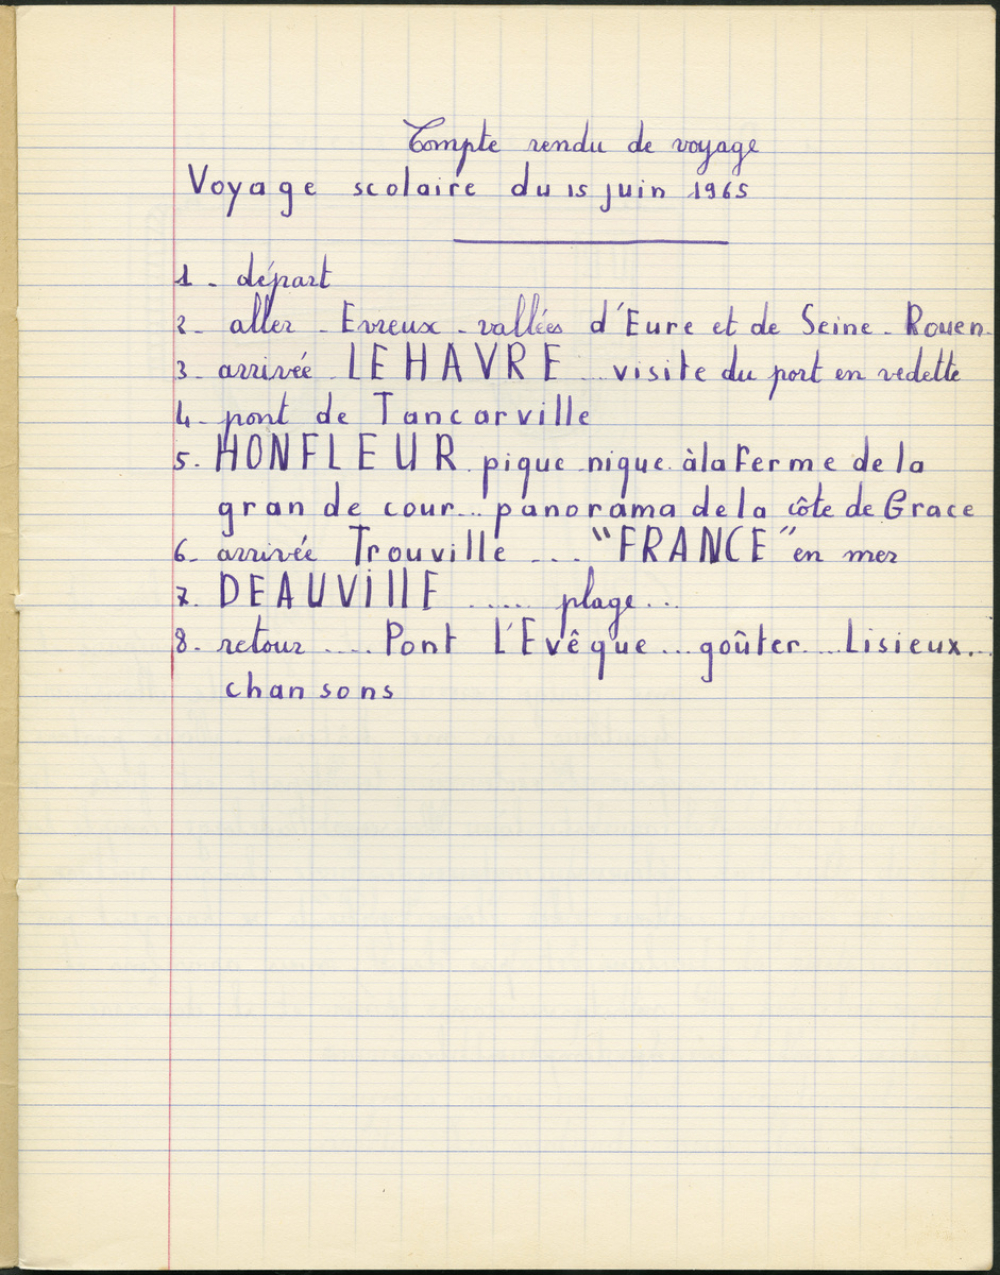 Compte rendu de voyage
Voyage scolaire du 15 juin 1965
1 - départ
2 - aller - Evreux - vallées d'Eure et de Seine - Rouen.
3 - arrivée LE HAVRE ... visite du port en vedette
4 - pont de Tancarville
5 - HONFLEUR. pique-nique. à la Ferme de la
grande cour... panorama de la côte de Grace
6 - arrivée Trouville .... "FRANCE" en mer
7. DEAUVillE ..... plage...
8. retour .... Pont L'Evêque ... goûter ... Lisieux...
chansons